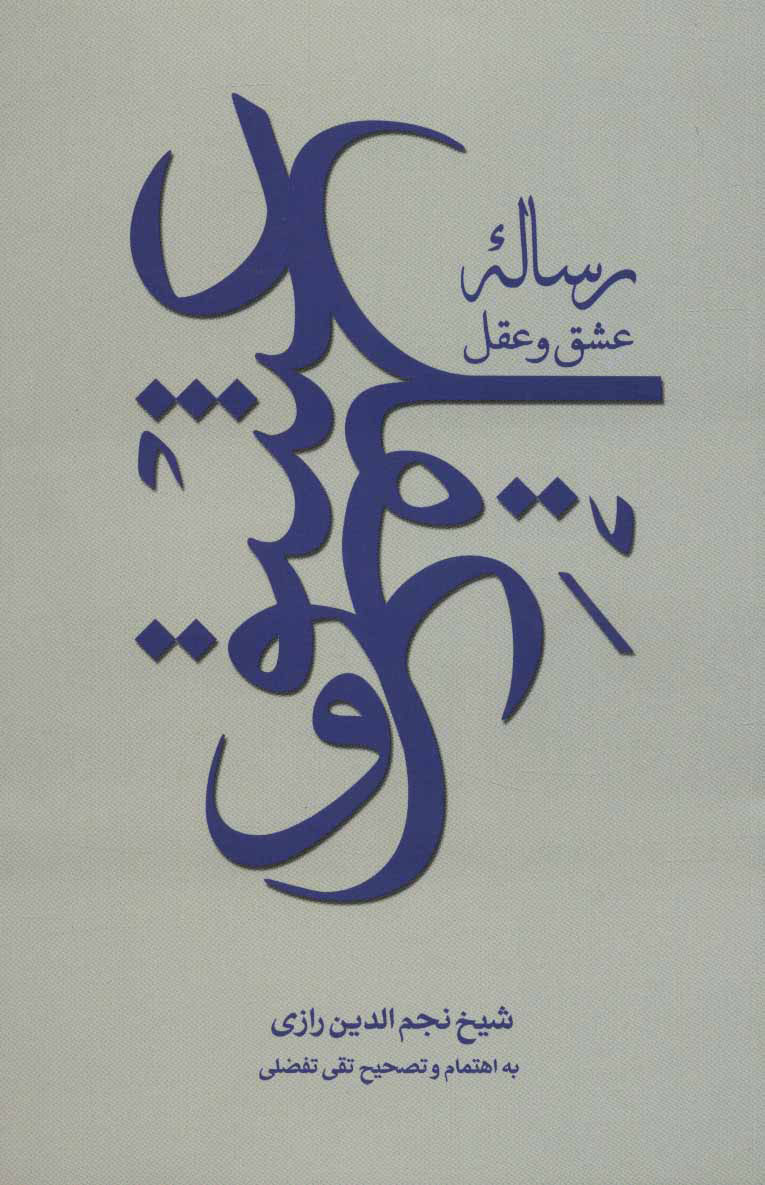 رسالهٔ
عشق و عقل
شیخ نجم الدین رازی
به اهتمام و تصحیح تقی تفضلی